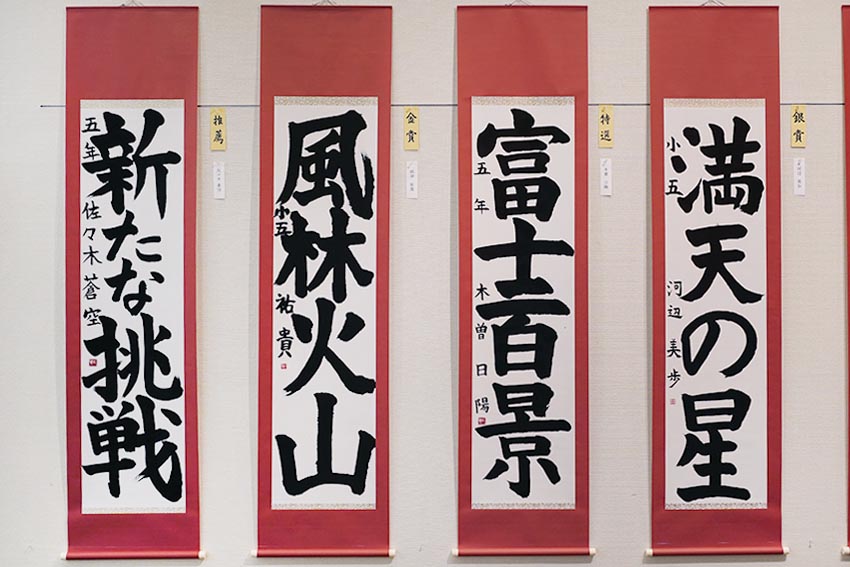 新たな挑戦
五年 佐々木蒼空
推薦
風林火山
小五 祐貴
金賞
富士百景
五年 木曽日陽
特選
満天の星
小五 河辺美歩
銀賞